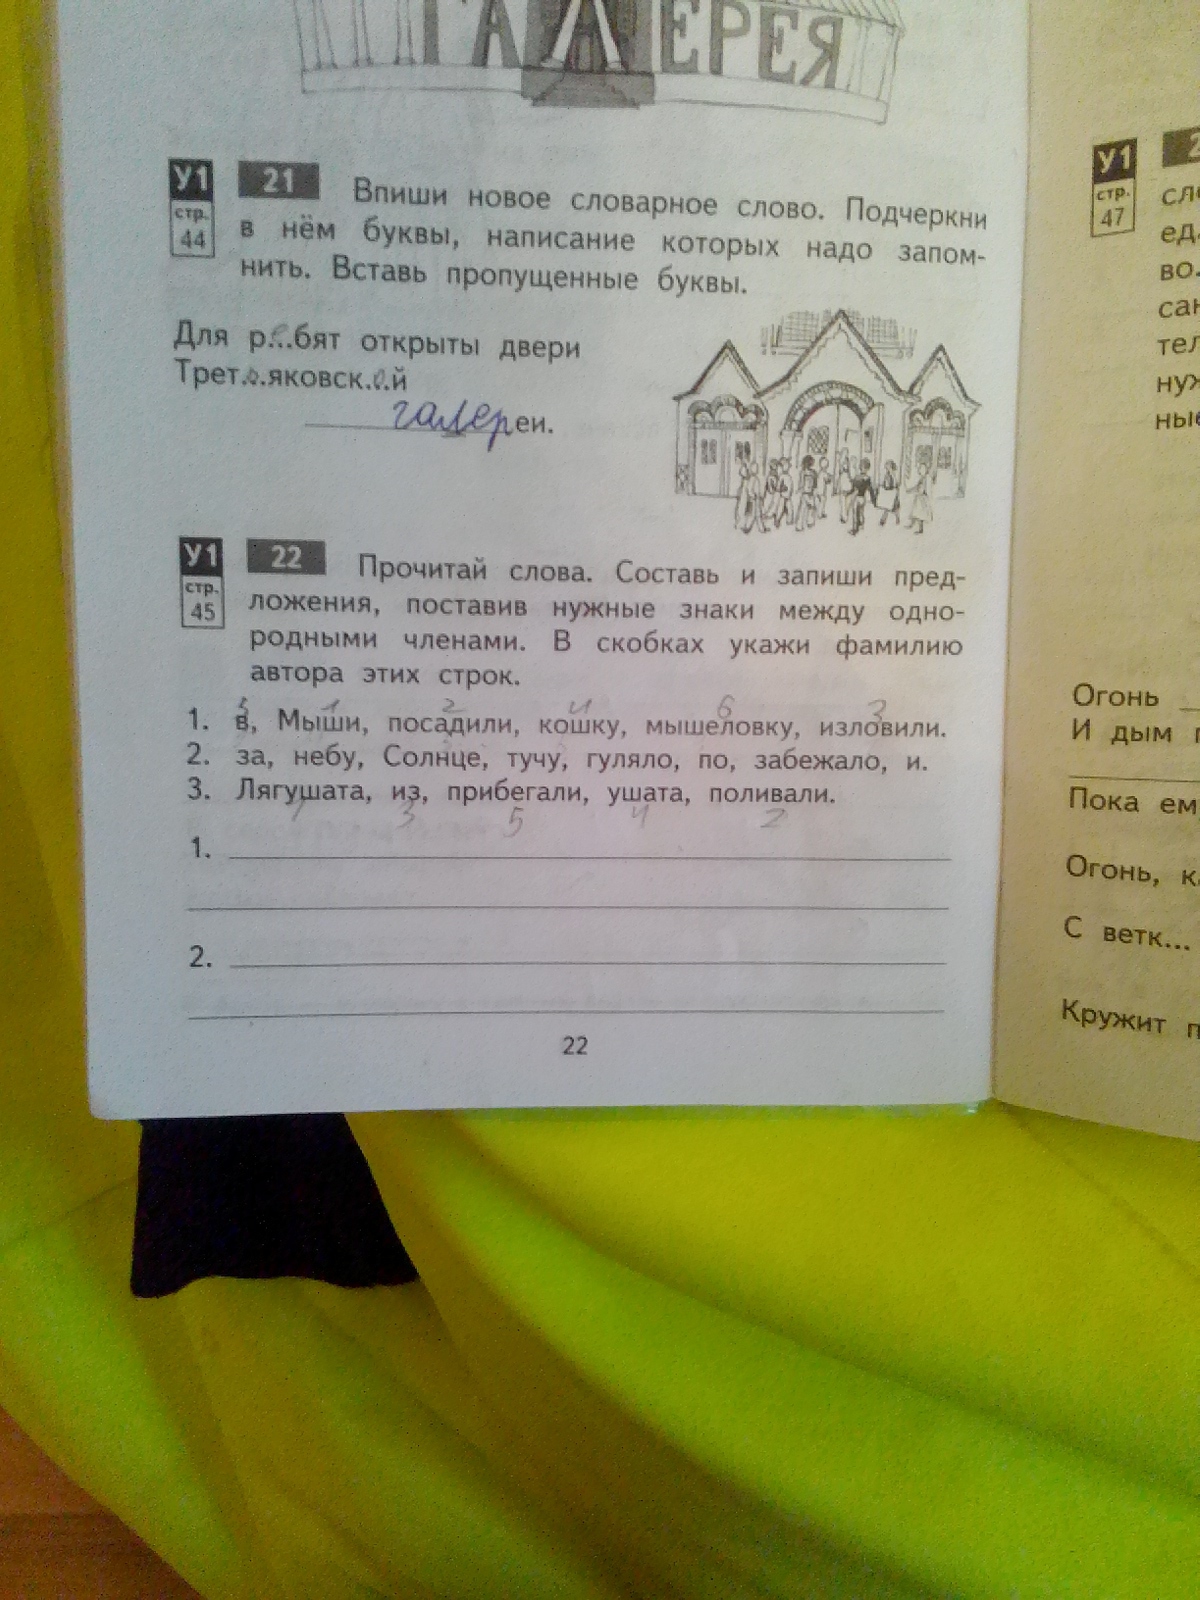 ГАЛЕРЕЯ
У1 21 Впиши новое словарное слово. Подчеркни
стр. 44 в нём буквы, написание которых надо запом-
нить. Вставь пропущенные буквы.
Для р.е.бят открыты двери
Трет.ь.яковск.о.й
галереи.
У1 22 Прочитай слова. Составь и запиши пред-
стр. 45 ложения, поставив нужные знаки между одно-
родными членами. В скобках укажи фамилию
автора этих строк.
5 1 2 4 6 3
1. в, Мыши, посадили, кошку, мышеловку, изловили.
2. за, небу, Солнце, тучу, гуляло, по, забежало, и.
3. Лягушата, из, прибегали, ушата, поливали.
1 3 5 4 2
1.
2.
22
У1 2
стр. 47
Огонь
И дым
Пока ем
Огонь,
С ветк...
Кружит п